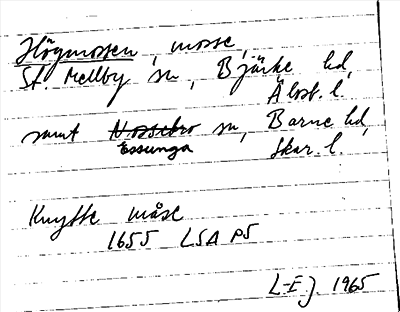 Högmossen, mosse,
St. Mellby sn, Bjärke hd,
Älvsb. l.
samt Nossebro sn, Barne hd,
Essunga Skar. l.
Knytte måse
1655 LSA P5
L-E.J. 1965